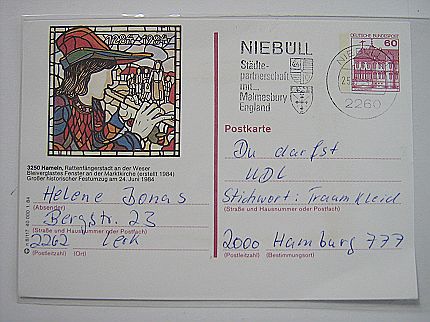 1284-1984
3250 Hameln, Rattenfängerstadt an der Weser
Bleiverglastes Fenster an der Marktkirche (erstellt 1984)
Großer historischer Festumzug am 24. Juni 1984
Helene Jonas
(Absender)
Bergstr. 23
(Straße und Hausnummer oder Postfach)
2262 Leck
(Postleitzahl) (Ort)
NIEBÜLL
Städte-
partnerschaft
mit...
Malmesbury
England
2260
DEUTSCHE BUNDESPOST
60
Postkarte
Du darfst
UDL
Stichwort: Traumkleid
(Straße und Hausnummer oder Postfach)
2000 Hamburg 777
(Postleitzahl) (Bestimmungsort)